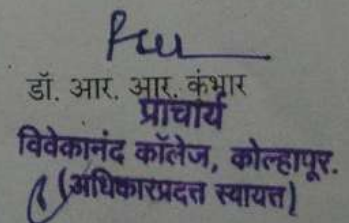 डॉ. आर. आर. कुंभार
प्राचार्य
विवेकानंद कॉलेज, कोल्हापूर.
(अधिकारप्रदत्त स्वायत्त)